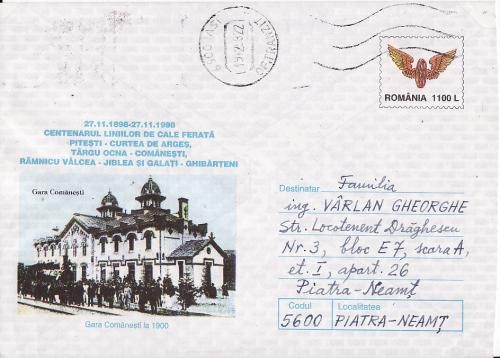 ROMÂNIA 1100 L
27.11.1898-27.11.1998
CENTENARUL LINIILOR DE CALE FERATĂ
PITEŞTI - CURTEA DE ARGEŞ,
TÂRGU OCNA - COMĂNEŞTI,
RÂMNICU VÂLCEA - JIBLEA ŞI GALAŢI - GHIBĂRŢENI
Gara Comăneşti
Gara Comăneşti la 1900
Destinatar Familia
ing. VÂRLAN GHEORGHE
Str. Locotenent Drăghescu
Nr. 3, bloc E7, scara A,
et. I, apart. 26
Piatra-Neamţ
Codul Localitatea
5600 PIATRA-NEAMŢ